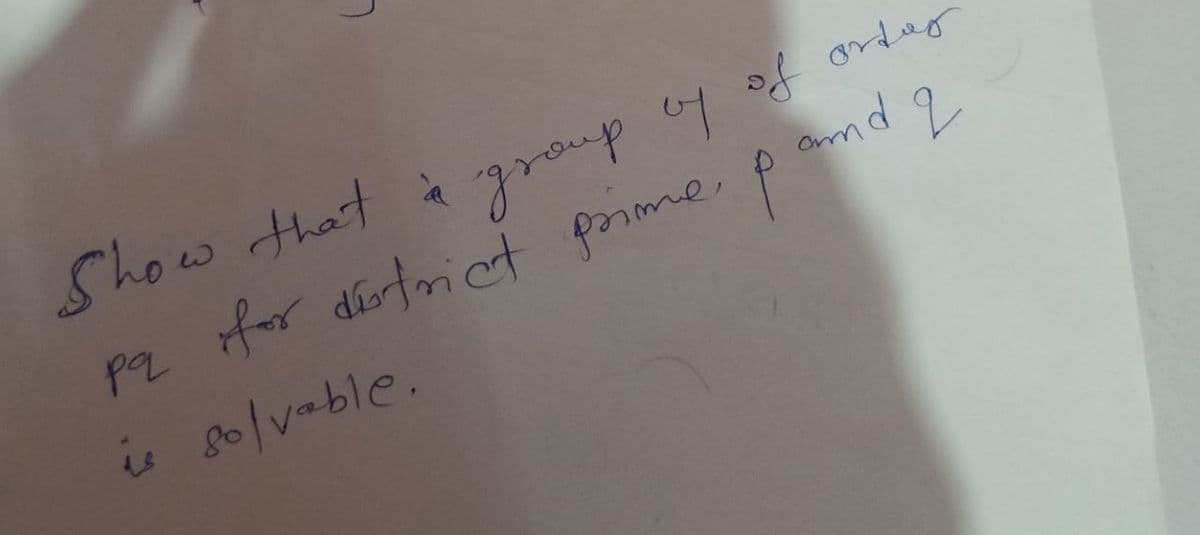 Show that a group G of order
pq for district prime, p amd q
is solvable.